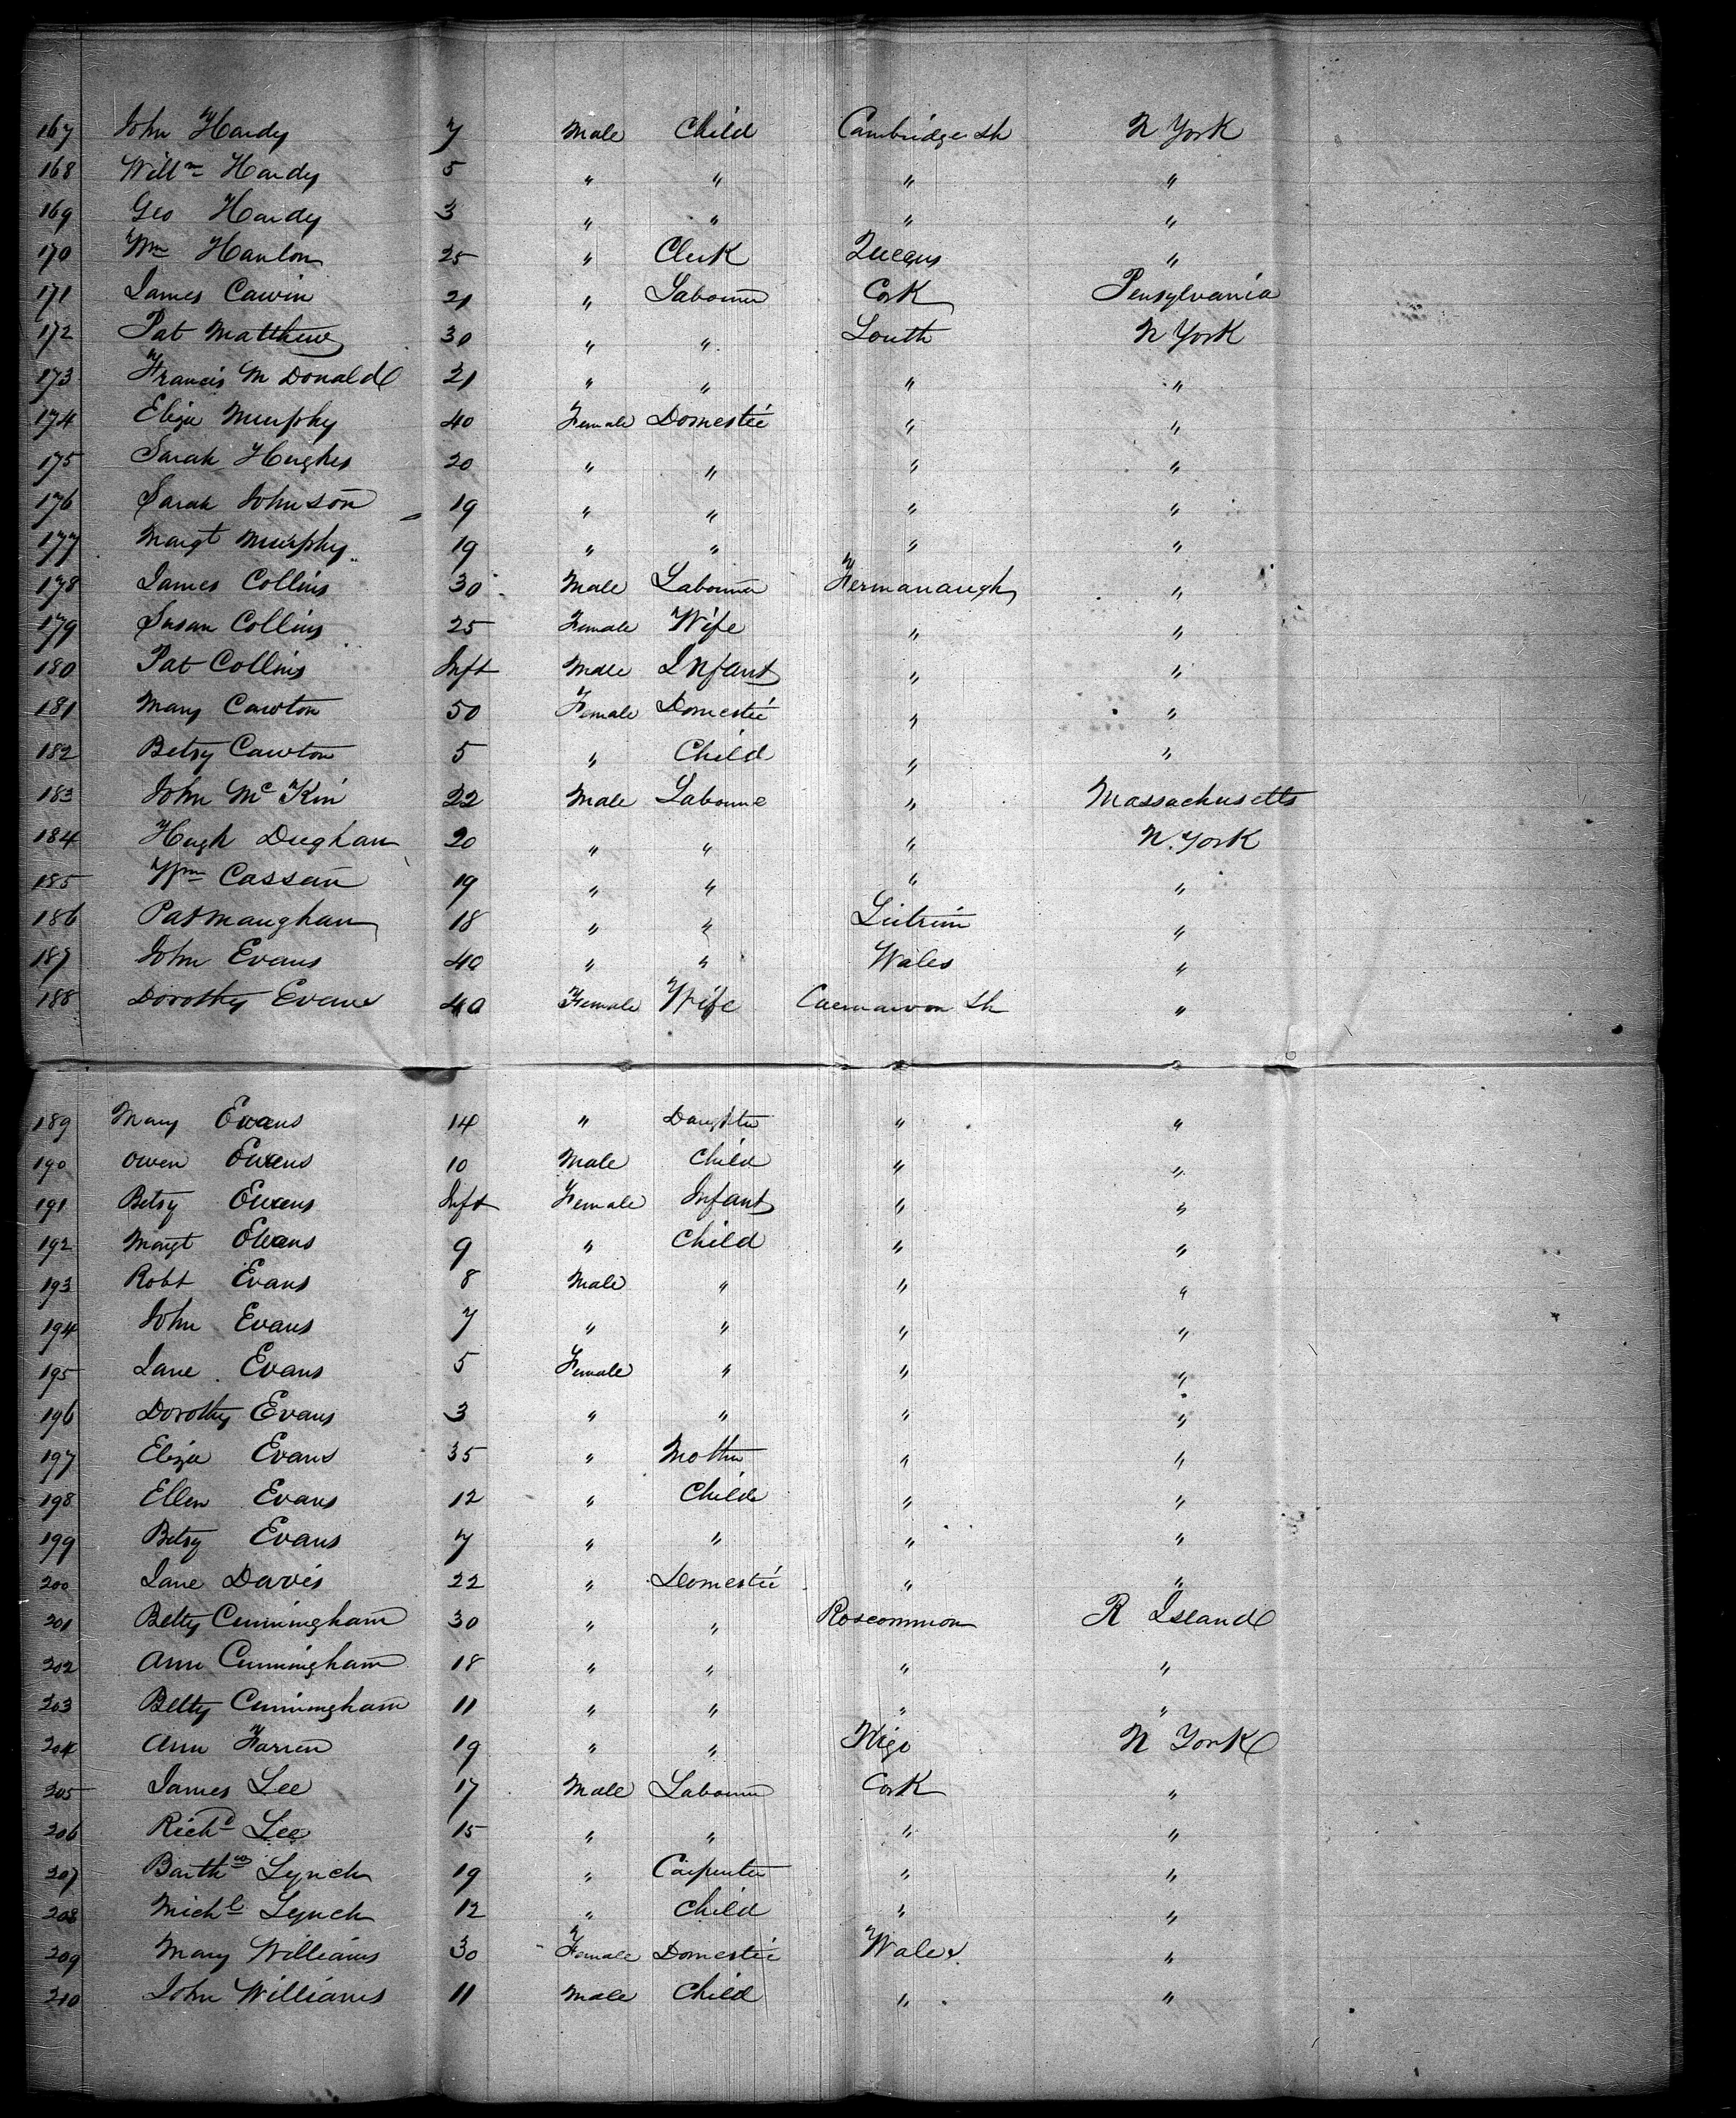 167 John Hardy 7 Male Child Cambridge Sh N York
168 Willm Hardy 5 " " " "
169 Geo Hardy 3 " " " "
170 Wm Hanlon 25 " Clerk Queens "
171 James Cawin 21 " Labourer Cork Pensylvania
172 Pat Matthews 30 " " Louth N York
173 Francis M Donald 21 " " " "
174 Eliza Murphy 40 Female Domestic " "
175 Sarah Hughes 20 " " " "
176 Sarah Johnson 19 " " " "
177 Margt Murphy 19 " " " "
178 James Collins 30 Male Labourer Fermanaugh "
179 Susan Collins 25 Female Wife " "
180 Pat Collins Inft Male Infant " "
181 Mary Cawton 50 Female Domestic " "
182 Betsy Cawton 5 " Child " "
183 John Mc Kin 22 Male Labourer " Massachusetts
184 Hugh Dughan 20 " " " N. York
185 Wm Cassan 19 " " " "
186 Pat Maughan 18 " " Leitrim "
187 John Evans 40 " " Wales "
188 Dorothy Evans 40 Female Wife Caernarvon Sh "
189 Mary Evans 14 " Daughter " "
190 Owen Evans 10 Male Child " "
191 Betsy Evans Inft Female Infant " "
192 Margt Evans 9 " Child " "
193 Robt Evans 8 Male " " "
194 John Evans 7 " " " "
195 Jane Evans 5 Female " " "
196 Dorothy Evans 3 " " " "
197 Eliza Evans 35 " Mother " "
198 Ellen Evans 12 " Child " "
199 Betsy Evans 7 " " " "
200 Jane Davis 22 " Domestic " "
201 Betty Cunningham 30 " " Roscommon R Island
202 Ann Cunningham 18 " " " "
203 Betty Cunningham 11 " " " "
204 Ann Farren 19 " " N York
205 James Lee 17 Male Labourer Cork "
206 Richd Lee 15 " " " "
207 Barthw Lynch 19 " Carpenter " "
208 Michl Lynch 12 " Child " "
209 Mary Williams 30 Female Domestic Wales "
210 John Williams 11 Male Child " "